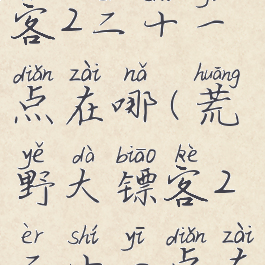 客2二十一
diǎn zài nǎ huāng
点在哪(荒
yě dà biāo kè
野大镖客2
èr shí yī diǎn zài